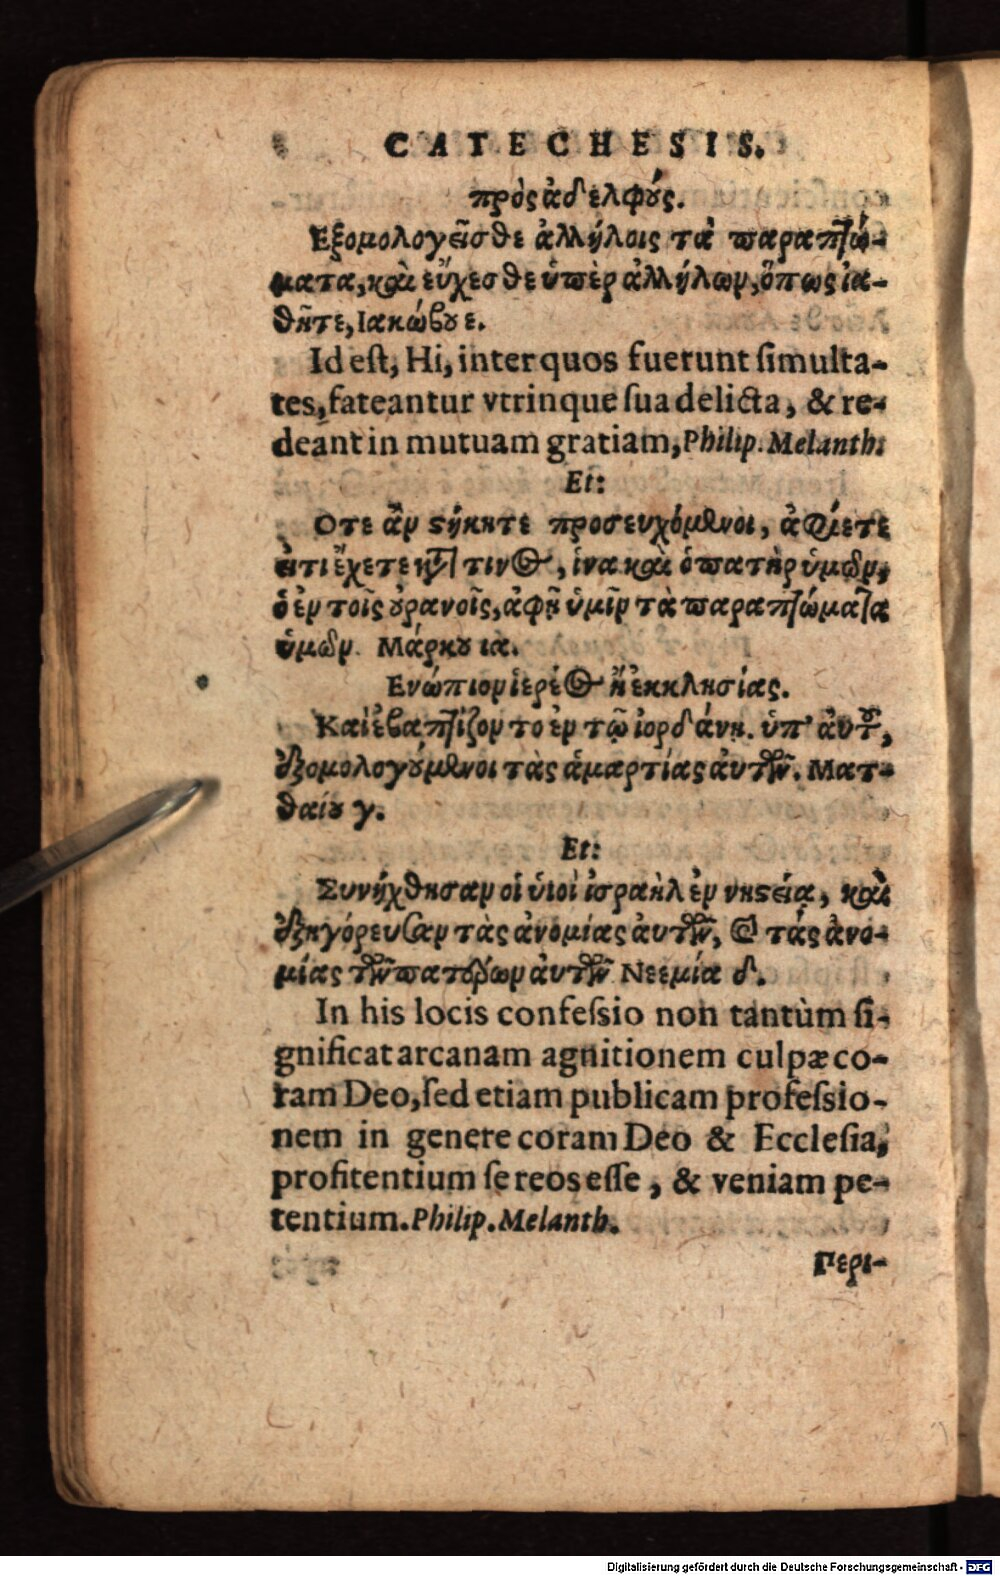 CATECHESIS.
πρὸς ἀδελφούς.
Εξομολογεῖσθε ἀλλήλοις τὰ παραπτώ-
ματα, καὶ εὔχεσθε ὑπὲρ ἀλλήλων, ὅπως ἰα-
θῆτε, Ιακώβου ε.
Id est, Hi, inter quos fuerunt simulta-
tes, fateantur vtrinque sua delicta, & re-
deant in mutuam gratiam, Philip. Melanth.
Et:
Οτε ἂν στήκητε προσευχόμενοι, ἀφίετε
εἴ τι ἔχετε κατά τινος, ἵνα καὶ ὁ πατὴρ ὑμῶν,
ὁ ἐν τοῖς οὐρανοῖς, ἀφῇ ὑμῖν τὰ παραπτώματα
ὑμῶν. Μάρκου ια.
Ενώπιον ἱερέος ἢ ἐκκλησίας.
Καὶ ἐβαπτίζοντο ἐν τῷ ἰορδάνῃ. ὑπ' ἀυτοῦ,
ἐξομολογούμενοι τὰς ἁμαρτίας ἀυτῶν. Ματ-
θαίου γ.
Et:
Συνήχθησαν οἱ ὑιοὶ ἰσραὴλ ἐν νηστείᾳ, καὶ
ἐξηγόρευσαν τὰς ἀνομίας ἀυτῶν, καὶ τάς ἀνο-
μίας τῶν πατέρων ἀυτῶν Νεεμία δ.
In his locis confessio non tantùm si-
gnificat arcanam agnitionem culpæ co-
ram Deo, sed etiam publicam professio-
nem in genere coram Deo & Ecclesia,
profitentium se reos esse, & veniam pe-
tentium. Philip. Melanth.
Περι-
Digitalisierung gefördert durch die Deutsche Forschungsgemeinschaft - DFG